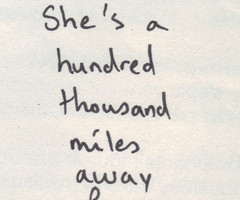 She's a
hundred
thousand
miles
away